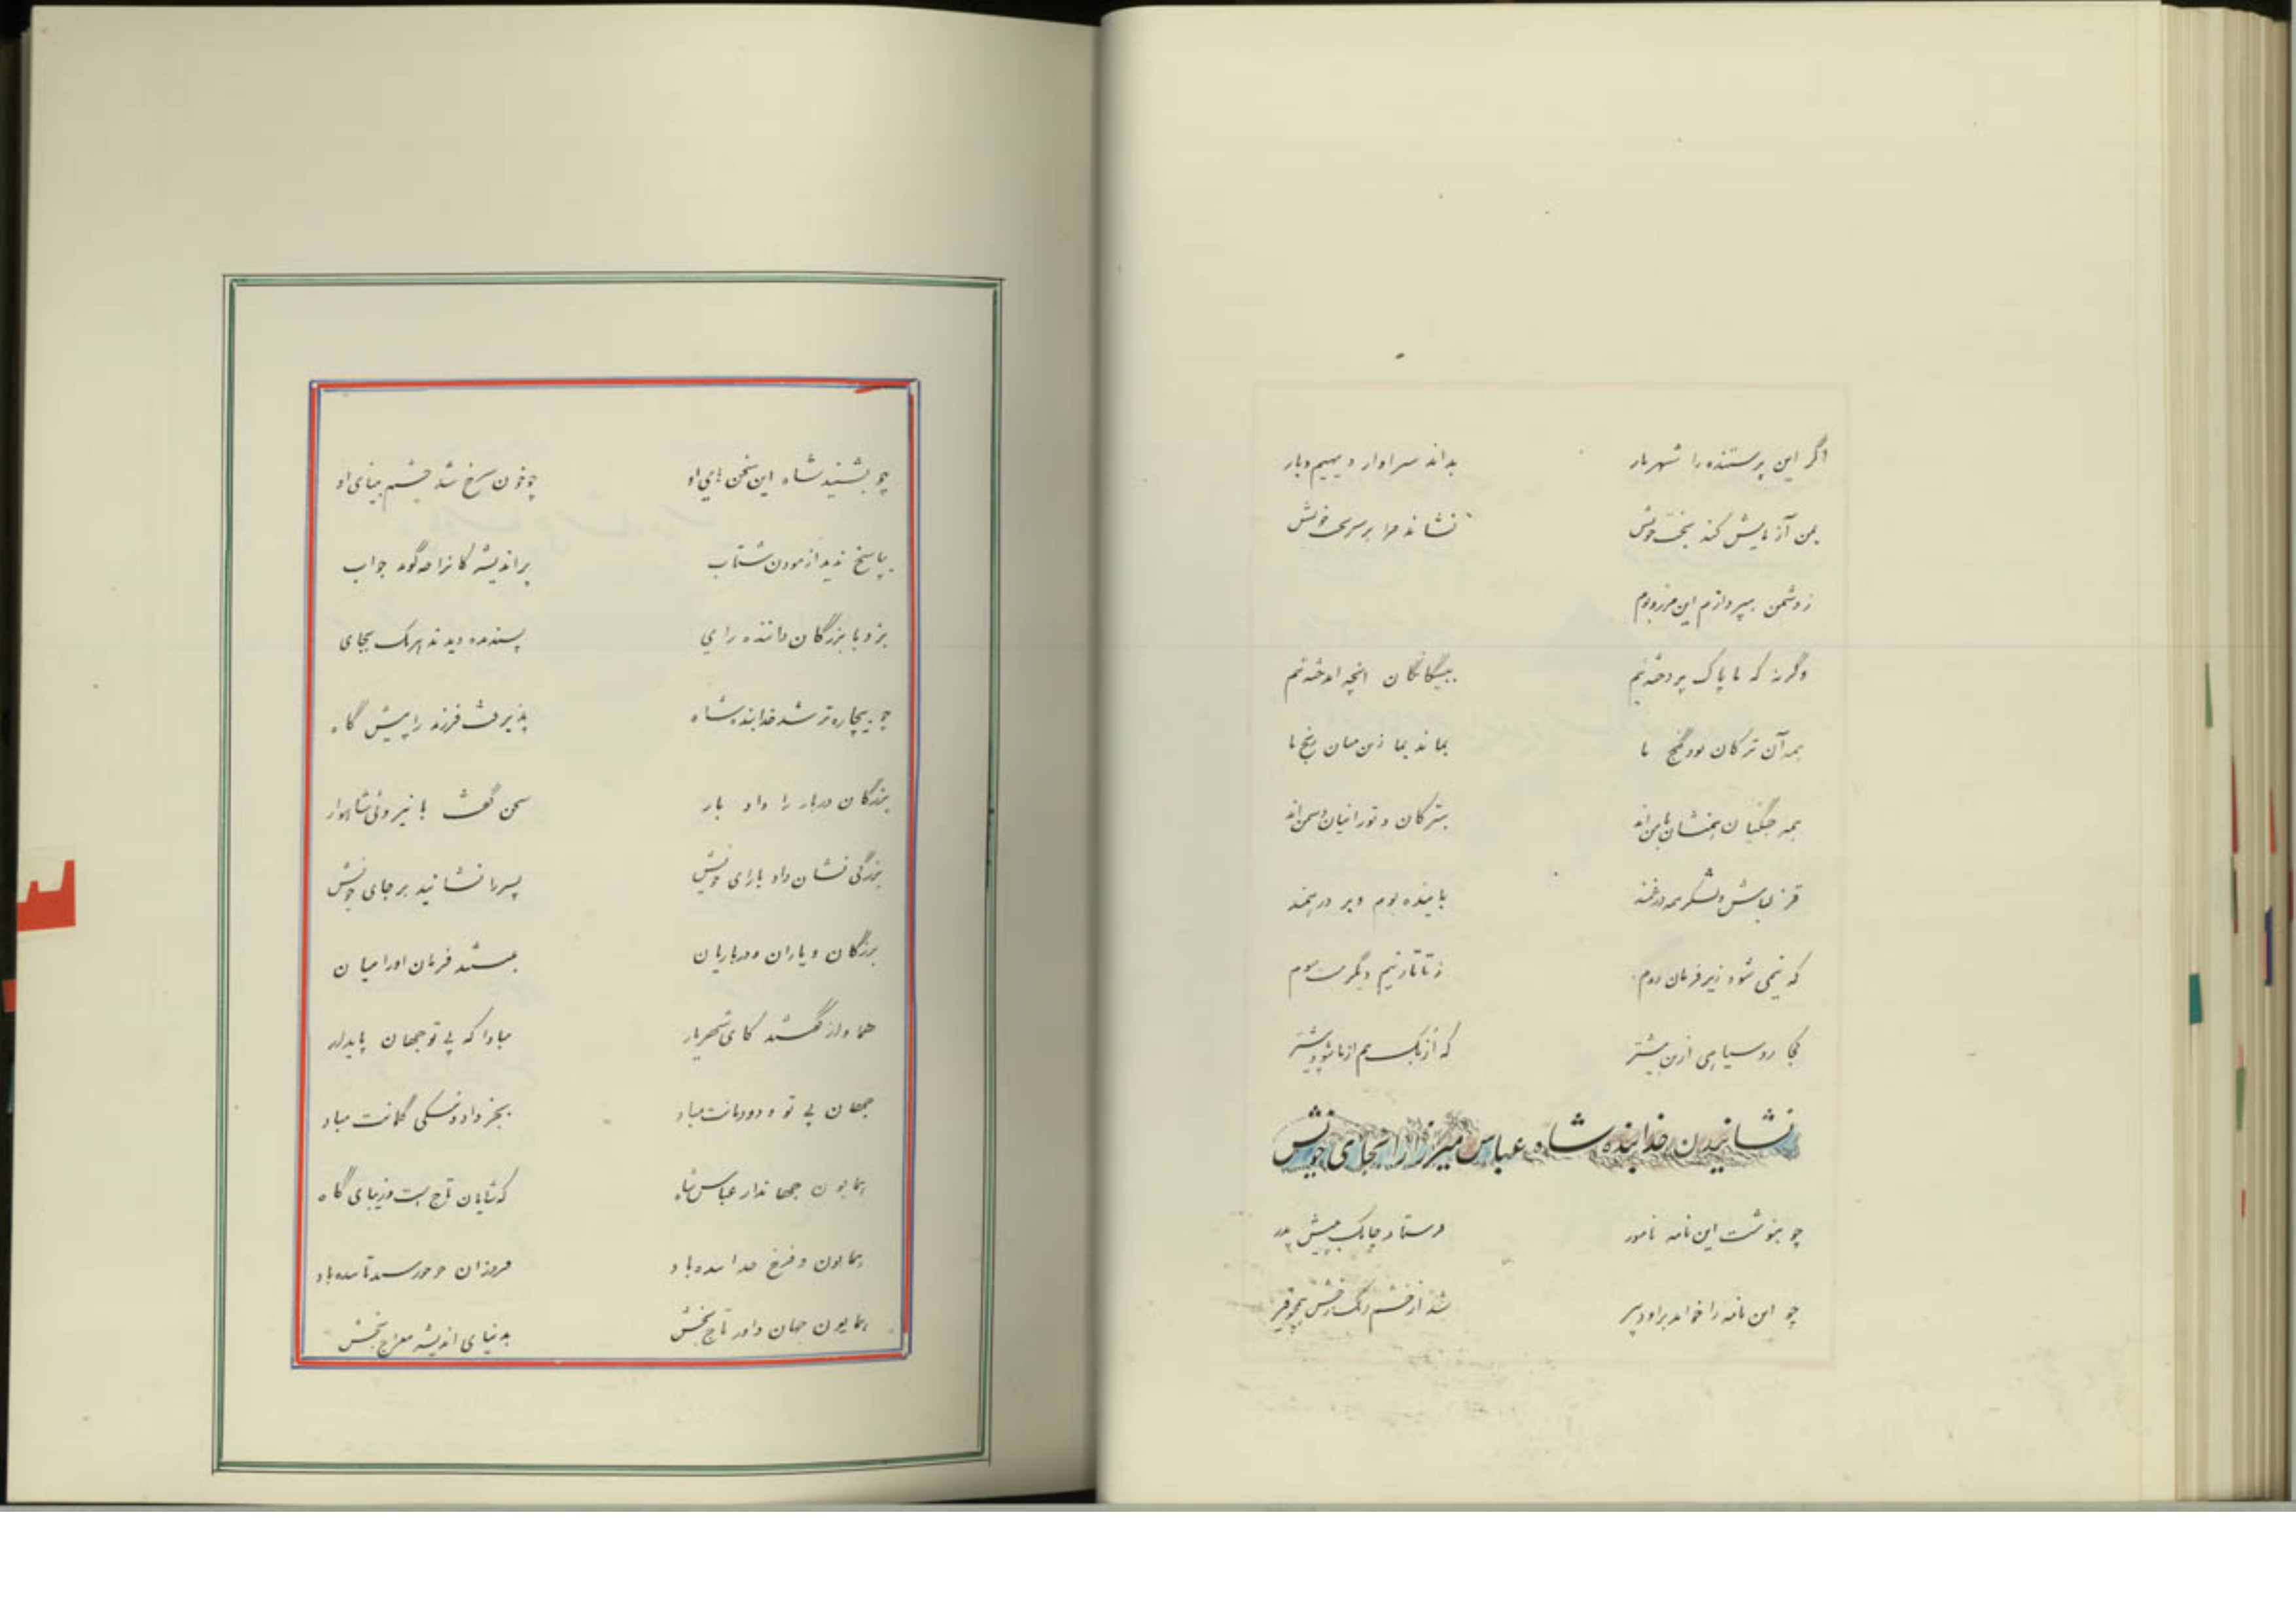 اگر این پرستنده را شهریار بداند سزاوار دیهیم و بار
بمن آزمایش کند بخت خویش نشاند مرا بر سر تخت خویش
ز دشمن بپردازم این مرز و بوم
وگرنه که ما پاک پرداختیم ببیگانگان آنچه اندوختیم
همه آن ترکان بود گنج ما بماند بما زن میان رنج ما
همه جنگیان همنشان با من‌اند بترکان و تورانیان دشمن‌اند
قزلباش و لشکر همه در غمند
که نیمی شود زیر فرمان روم ز تاتار نیم دیگر
کجا روسیاهی ازین بیشتر که ازبک هم از ما شود پیشتر
نشانیدن خدابنده شاه عباس میرزا را بجای خویش
چو بنوشت این نامه نامور فرستاد چابک به پیش پدر
چو این نامه را خواند براو دبیر شد از خشم رنگ رخش همچو قیر
چو بشنید شاه این سخن‌های او چو خون سرخ شد چشم بینای او
بپاسخ ندید ازمودن شتاب براندیشه کانرا چه گوید جواب
بزد با بزرگان داننده رای پسندیده دیدند هریک بجای
چو بیچاره‌تر شد خدابنده شاه پذیرفت فرزند را پیش گاه
بزرگان دربار را داد بار سخن گفت با نیروئی شاهوار
بزرگی نشان داد با رای خویش پسر را نشانید بر جای خویش
بزرگان و یاران و درباریان ببستند فرمان او را میان
هم‌آواز گفتند کای شهریار مبادا که بی تو جهان پایدار
جهان بی تو و دودمانت مباد بجز داد و نیکی گمانت مباد
همایون جهاندار عباس شاه که شایان تاج است و زیبای گاه
همایون و فرخ خداینده باد فروزان چو خورشید تابنده باد
همایون جهان داور تاج بخش بدنیای اندیشه معراج بخش